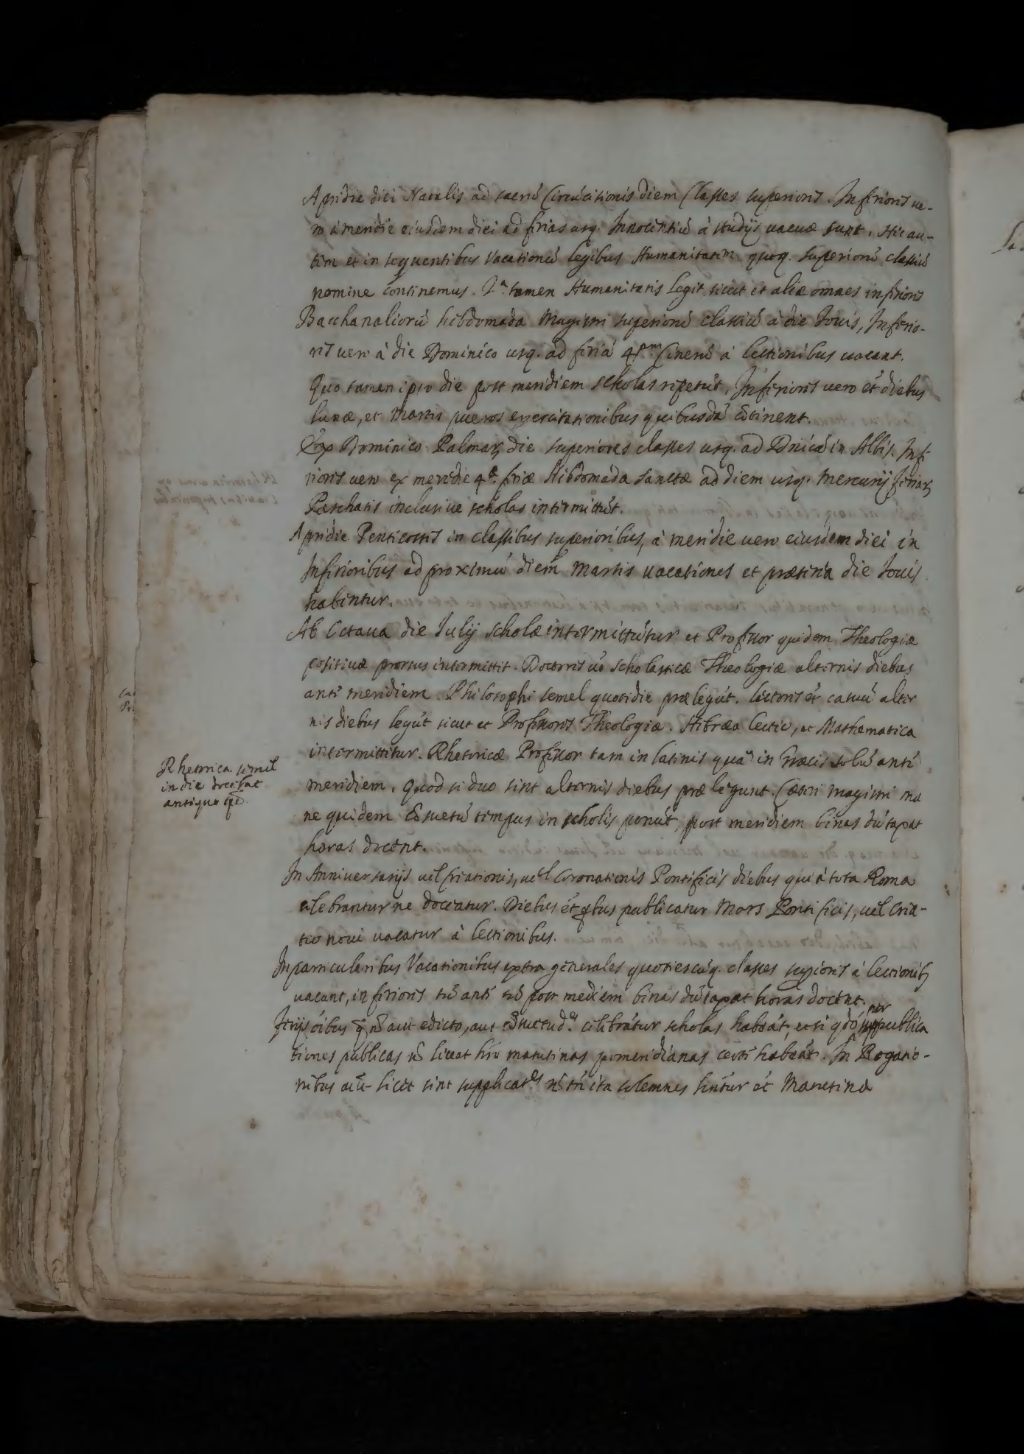 A pridie diei Natalis ad sacrũ Circũcisionis diem Classes superiores. Inferiores ve-
rò à meridie eiusdem diei ad ferias usq. Innocentiũ à studijs vacuæ sunt. Hic au-
tem et in sequentibus vacationũ legibus Humanitatem quoq. superiorũ classiũ
nomine continemus. tamen Humanitatis legit sicut et aliæ omnes inferiores
Bacchanaliorũ hebdomada Magistri superiorũ classiũ à die Iovis, Inferio-
res vero à die Dominico usq. ad feriã 4am Cinerũ à lectionibus vacant.
Quo tamen ipso die post meridiem scholas repetũt. Inferiores vero ẽt diebus
lunæ, et Martis pueros exercitationibus quibusdã cõtinent.
Ex Dominico Palmarũ die superiores classes usq. ad Dnicã in Albis. Infe-
riores vero ex meridie 4æ feriæ Hebdomadæ sanctæ ad diem usq. Mercurij feriarũ
Paschatis inclusive scholas intermittũt.
A pridie Pentecostes in classibus superioribus, à meridie vero eiusdem diei in
Inferioribus ad proximũ diem Martis vacationes et prætereà die Iovis
habentur.
Ab Octava die Iulij scholæ intermittũtur et Professor quidem Theologiæ
positivæ prorsus intermittit. Doctores vẽ scholasticæ Theologiæ alternis diebus
ante meridiem. Philosophi semel quotidie prælegũt. Lectores ẽt casuũ alter
nis diebus legũt sicut et Professores Theologiæ. Hebræa lectio, ac Mathematica
intermittitur. Rhetoricæ Professor tam in latinis quã in Græcis solũ ante
meridiem. Quod si duo sint alternis diebus prælegunt. Cæteri magistri ma
ne quidem cõsuetũ tempus in scholis ponũt, post meridiem binas dũtaxat
horas docent.
Rhetorica semel
in die doceat
antiquo
In Anniversarijs vel creationis, vel Coronationis Pontificis diebus qui à tota Roma
celebrantur ne doceatur. Diebus ẽt quibus publicatur Mors Pontificis, vel Crea-
tio novi vacatur à lectionibus.
In particularibus Vacationibus extra generales quotiescũq. classes superiores à lectionib;
vacant, inferiores tũ ante tũ post meridiem binas dũtaxat horas docent.
Festis oibus nõ aut edicto, aut cõsuetud.e celebrãtur scholas habeãt; etsi qdõ per supplica
tiones publicas nõ liceat horis matutinas pomeridianas certe habeãt. In Rogatio-
nibus licet sint supplicat.es nõ tñ ita solemnes habentur ẽt Matutinæ